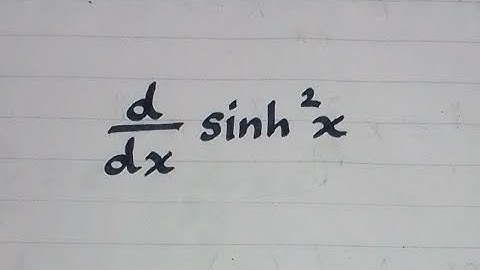 d/dx sinh²x